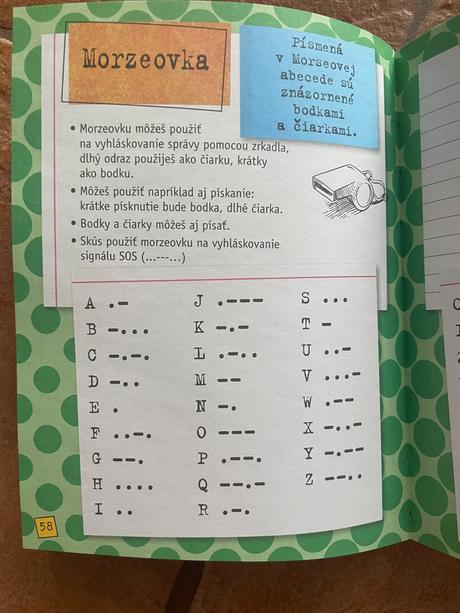 Morzeovka
Písmená
v Morseovej
abecede sú
znázornené
bodkami
a čiarkami.
• Morzeovku môžeš použiť
na vyhláskovanie správy pomocou zrkadla,
dlhý odraz použiješ ako čiarku, krátky
ako bodku.
• Môžeš použiť napríklad aj pískanie:
krátke písknutie bude bodka, dlhé čiarka.
• Bodky a čiarky môžeš aj písať.
• Skús použiť morzeovku na vyhláskovanie
signálu SOS (...---...)
A .-
B -...
C -.-.
D -..
E .
F ..-.
G --.
H ....
I ..
J .---
K -.-
L .-..
M --
N -.
O ---
P .--.
Q --.-
R .-.
S ...
T -
U ..-
V ...-
W .--
X -..-
Y -.--
Z --..
58